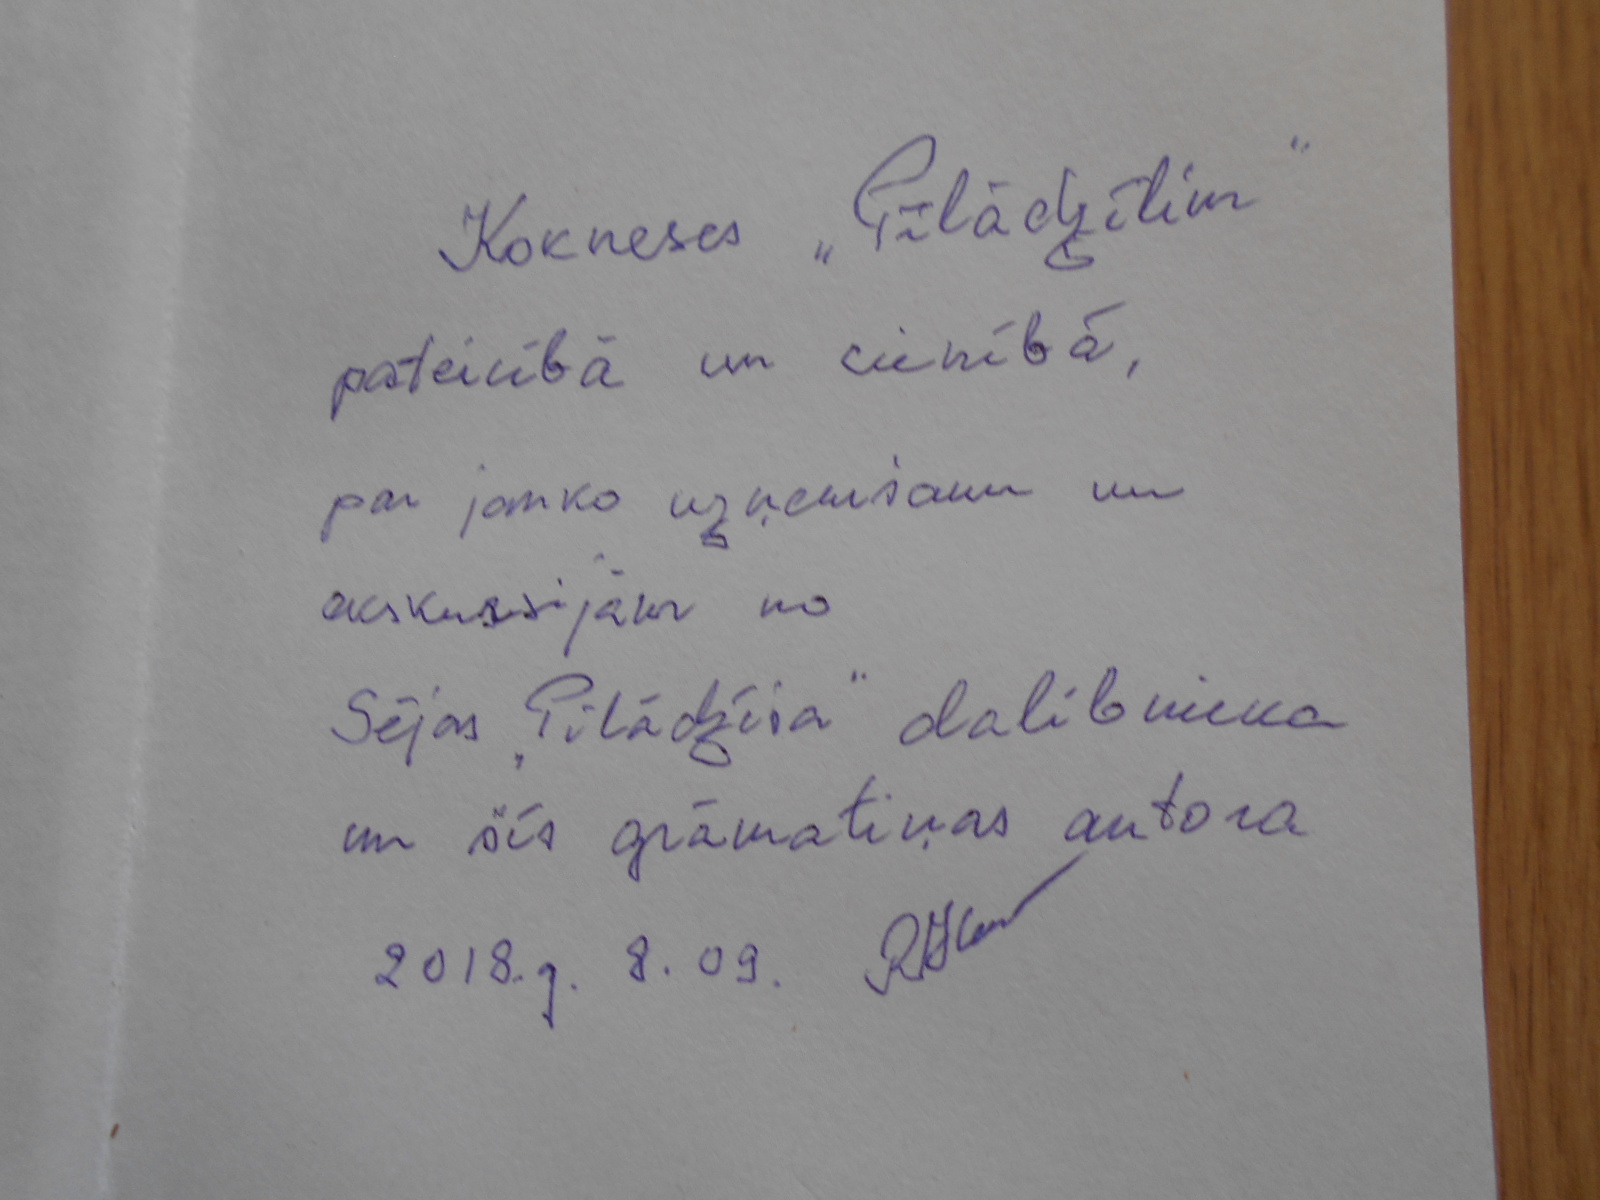 Kokneses „Pīlādzītim"
pateicībā un cieņībā,
par jauko uzņemšanu un
ekskursijām no
Sējas „Pīlādzīša" dalībnieka
un šīs grāmatiņas autora
2018.g. 8.09.